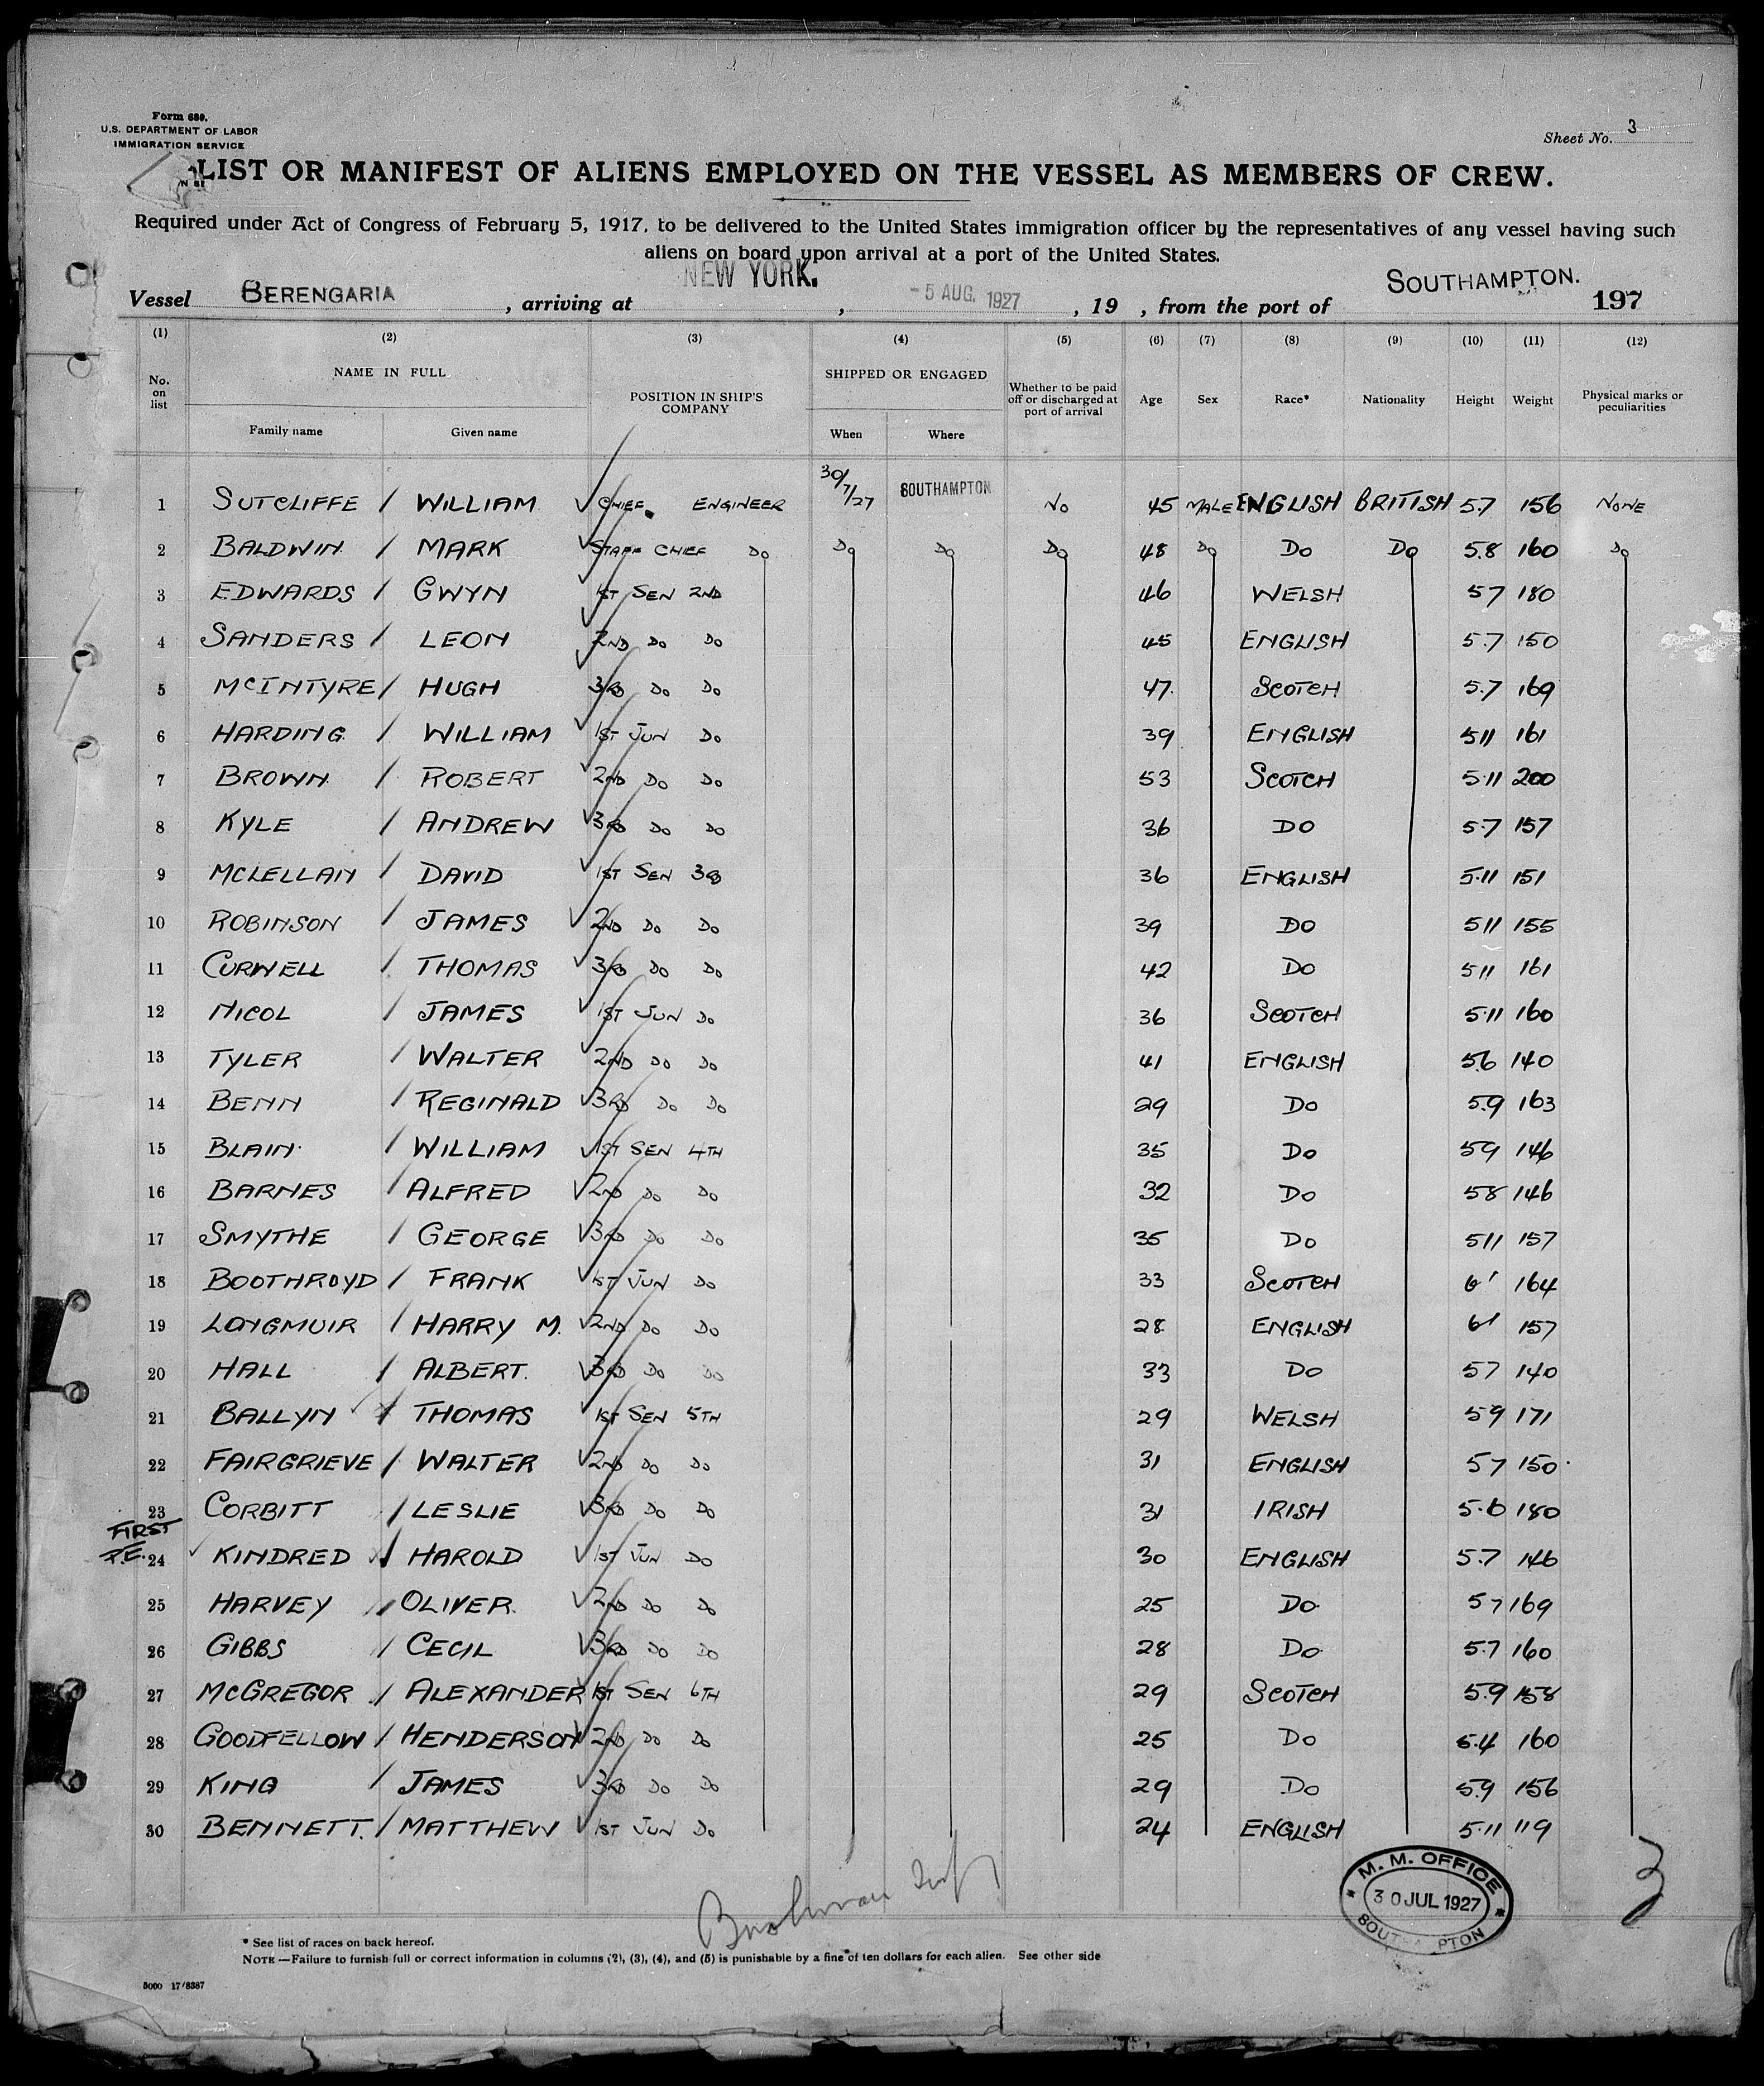 Form 680.
U.S. DEPARTMENT OF LABOR
IMMIGRATION SERVICE
Sheet No. 3
LIST OR MANIFEST OF ALIENS EMPLOYED ON THE VESSEL AS MEMBERS OF CREW.
Required under Act of Congress of February 5, 1917, to be delivered to the United States immigration officer by the representatives of any vessel having such
aliens on board upon arrival at a port of the United States.
Vessel BERENGARIA , arriving at NEW YORK. , -5 AUG. 1927 , 19 , from the port of SOUTHAMPTON. 197
(1) (2) (3) (4) (5) (6) (7) (8) (9) (10) (11) (12)
No. on list NAME IN FULL POSITION IN SHIP'S COMPANY SHIPPED OR ENGAGED Whether to be paid off or discharged at port of arrival Age Sex Race* Nationality Height Weight Physical marks or peculiarities
Family name Given name When Where
1 SUTCLIFFE / WILLIAM CHIEF ENGINEER 30/7/27 SOUTHAMPTON No 45 MALE ENGLISH BRITISH 5.7 156 NONE
2 BALDWIN / MARK STAFF CHIEF Do Do Do Do 48 Do Do Do 5.8 160 Do
3 EDWARDS / GWYN 1ST SEN 2ND 46 WELSH 57 180
4 SANDERS / LEON 2ND Do Do 45 ENGLISH 5.7 150
5 McINTYRE / HUGH 3RD Do Do 47 SCOTCH 5.7 169
6 HARDING / WILLIAM 1ST JUN Do 39 ENGLISH 511 161
7 BROWN / ROBERT 2ND Do Do 53 SCOTCH 5.11 200
8 KYLE / ANDREW 3RD Do Do 36 DO 5.7 157
9 McLELLAN / DAVID 1ST SEN 3RD 36 ENGLISH 5.11 151
10 ROBINSON / JAMES 2ND Do Do 39 DO 511 155
11 CURWELL / THOMAS 3RD Do Do 42 Do 511 161
12 NICOL / JAMES 1ST JUN Do 36 SCOTCH 5.11 160
13 TYLER / WALTER 2ND Do Do 41 ENGLISH 5.6 140
14 BENN / REGINALD 3RD Do Do 29 Do 5.9 163
15 BLAIN / WILLIAM 1ST SEN 4TH 35 Do 59 146
16 BARNES / ALFRED 2ND Do Do 32 Do 58 146
17 SMYTHE / GEORGE 3RD Do Do 35 Do 511 157
18 BOOTHROYD / FRANK 1ST JUN Do 33 SCOTCH 6' 164
19 LONGMUIR / HARRY M. 2ND Do Do 28 ENGLISH 6' 157
20 HALL / ALBERT. 3RD Do Do 33 Do 57 140
21 BALLYN / THOMAS 1ST SEN 5TH 29 WELSH 59 171
22 FAIRGRIEVE / WALTER 2ND Do Do 31 ENGLISH 57 150
23 CORBITT / LESLIE 3RD Do Do 31 IRISH 5.6 180
FIRST
24 KINDRED / HAROLD 1ST JUN Do 30 ENGLISH 5.7 146
25 HARVEY / OLIVER. 2ND Do Do 25 Do 57 169
26 GIBBS / CECIL 3RD Do Do 28 Do 5.7 160
27 McGREGOR / ALEXANDER 1ST SEN 6TH 29 SCOTCH 5.9 158
28 GOODFELLOW / HENDERSON 2ND Do Do 25 Do 5.4 160
29 KING / JAMES 3RD Do Do 29 Do 5.9 156
30 BENNETT. / MATTHEW 1ST JUN Do 24 ENGLISH 5.11 119
M. M. OFFICE
30 JUL 1927
3
* See list of races on back hereof.
NOTE.—Failure to furnish full or correct information in columns (2), (3), (4), and (5) is punishable by a fine of ten dollars for each alien. See other side
5000 17/8387